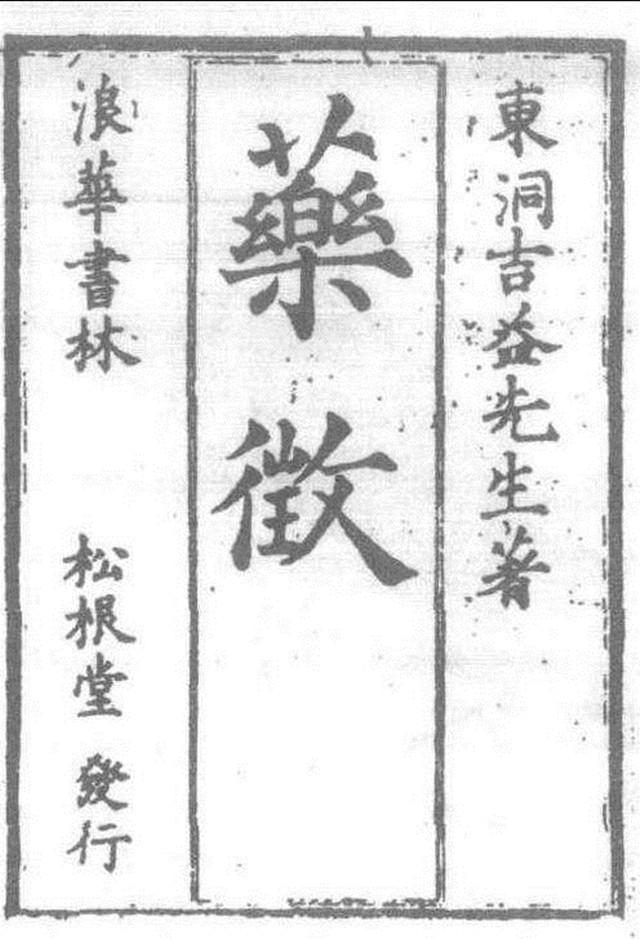 東洞吉益先生著
藥徵
浪華書林 松根堂 發行